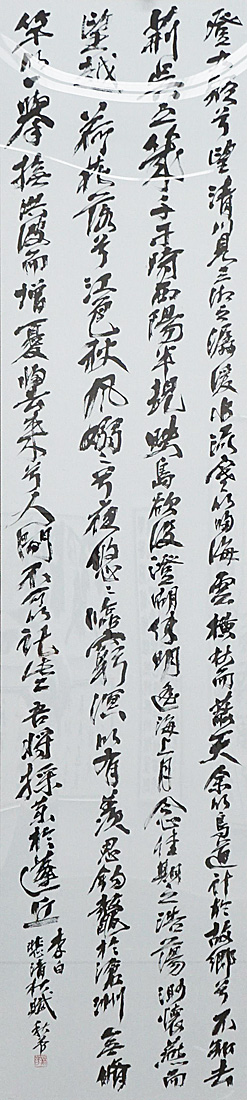 登九疑兮望清川見三湘之潺湲水流寒以歸海雲橫秋而蔽天余以鳥道計於故鄉兮不知去
荊吳之幾千于時西陽半規映島欲沒澄湖練明遙海上月念佳期之浩蕩渺懷燕而
望越荷花落兮江色秋風嫋嫋兮夜悠悠臨窮溟以有羨思釣鰲於滄洲無脩
竿以一舉撫洪波而增憂歸去來兮人間不可以託些吾將採藥於蓬丘
李白
悲清秋賦